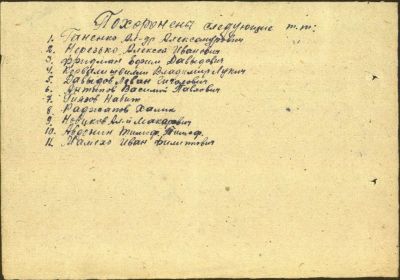 Похоронены следующие т.т:
1. Ганенко Ал-др Александрович
2. Нерезько Алексей Иванович
3. Фридман Ефим Давыдович
4. Владимир Лукич
5. Давыдов Леван
6. Антипов Василий Павлович
7. Ниязов Набит
8. Раджапов Халик
9. Новиков Ал-й Макарович
10. Авдонин Тимоф. Тимоф.
11. Мамехо Иван Филиппович